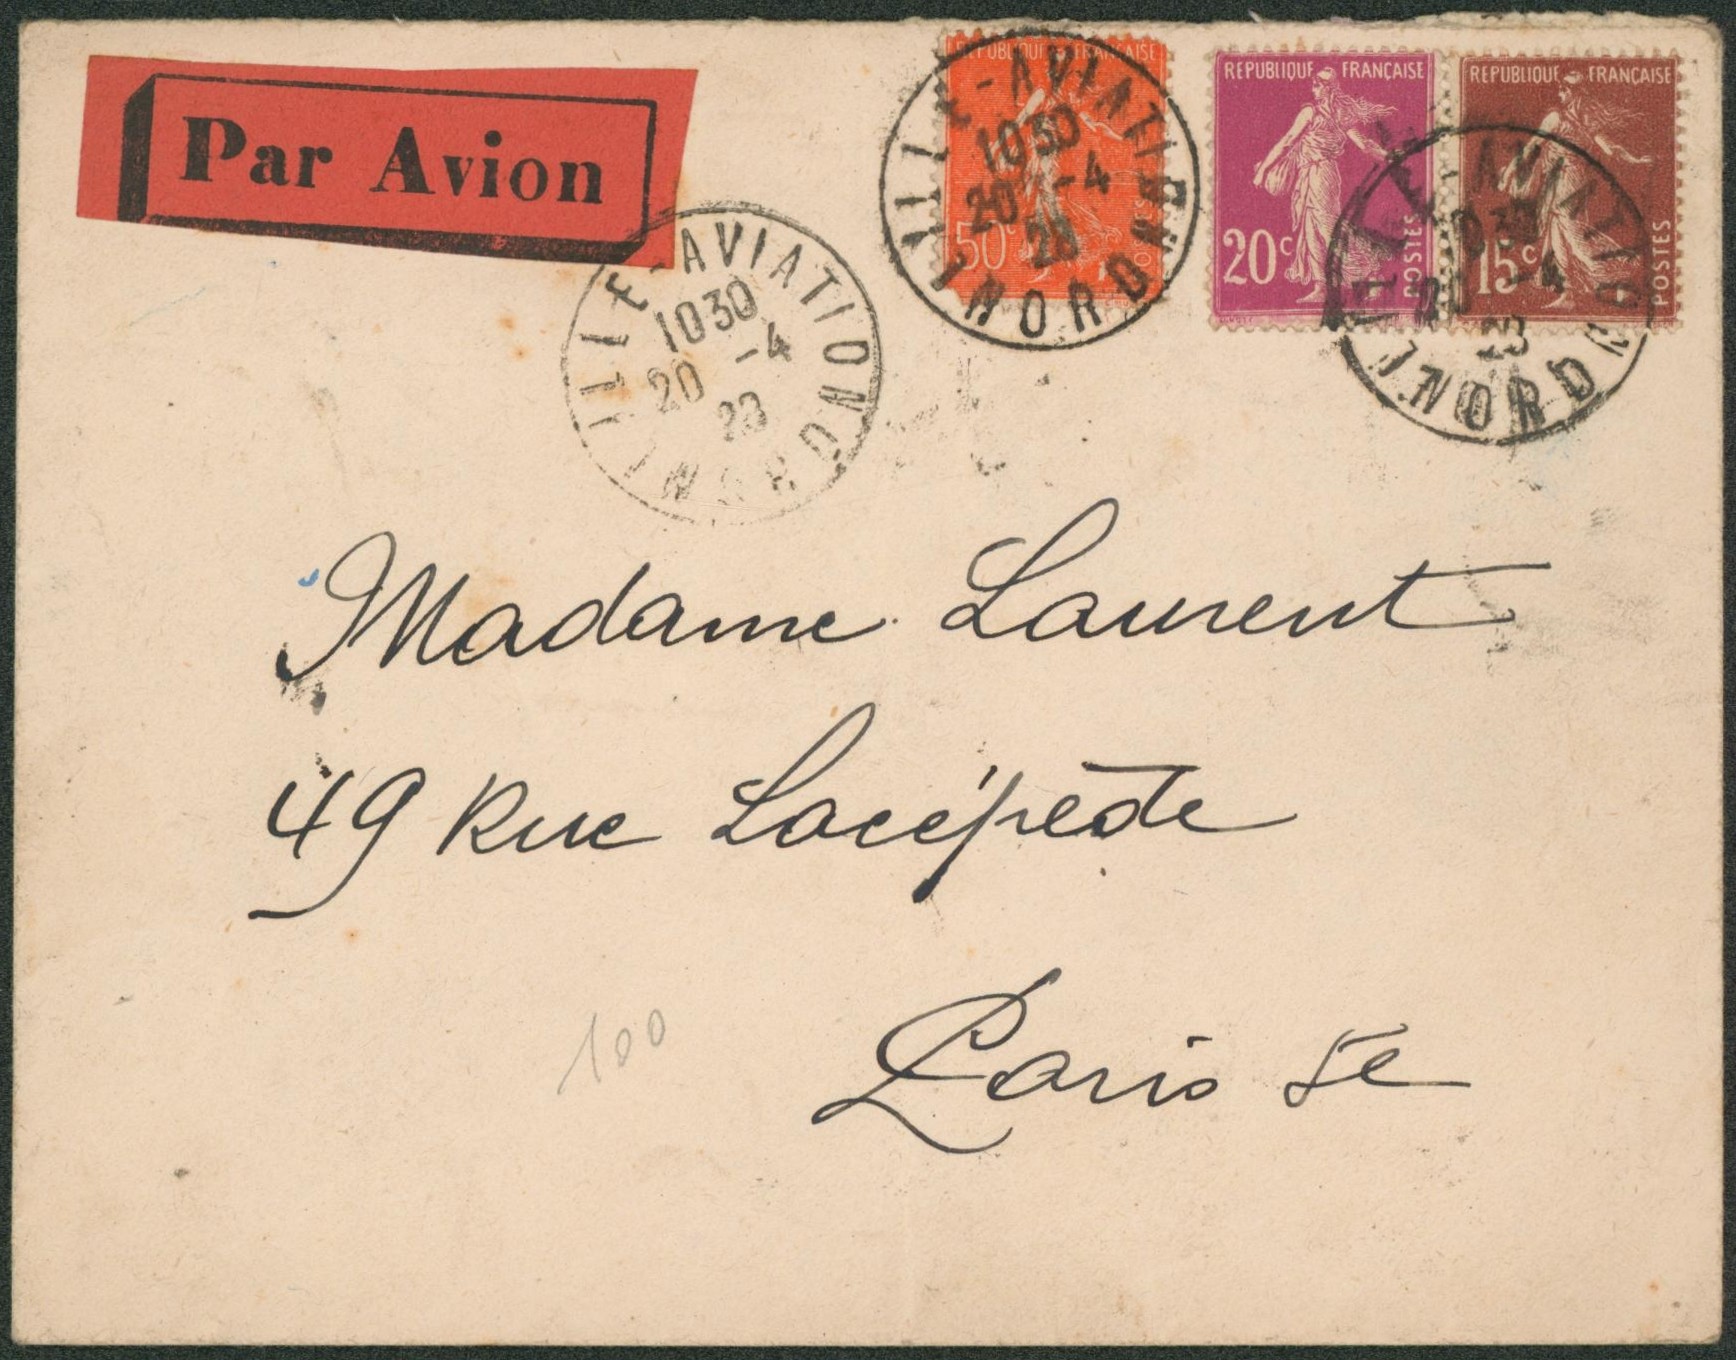 Par Avion
REPUBLIQUE FRANÇAISE
50c
REPUBLIQUE FRANÇAISE
20c
POSTES
REPUBLIQUE FRANÇAISE
15c
POSTES
LILLE-AVIATION
1030
20 -4
28
NORD
LILLE-AVIATION
1030
20 -4
28
NORD
LILLE-AVIATION
1030
20 -4
NORD
Madame Laurent
49 Rue Lacépède
Paris 5e
100